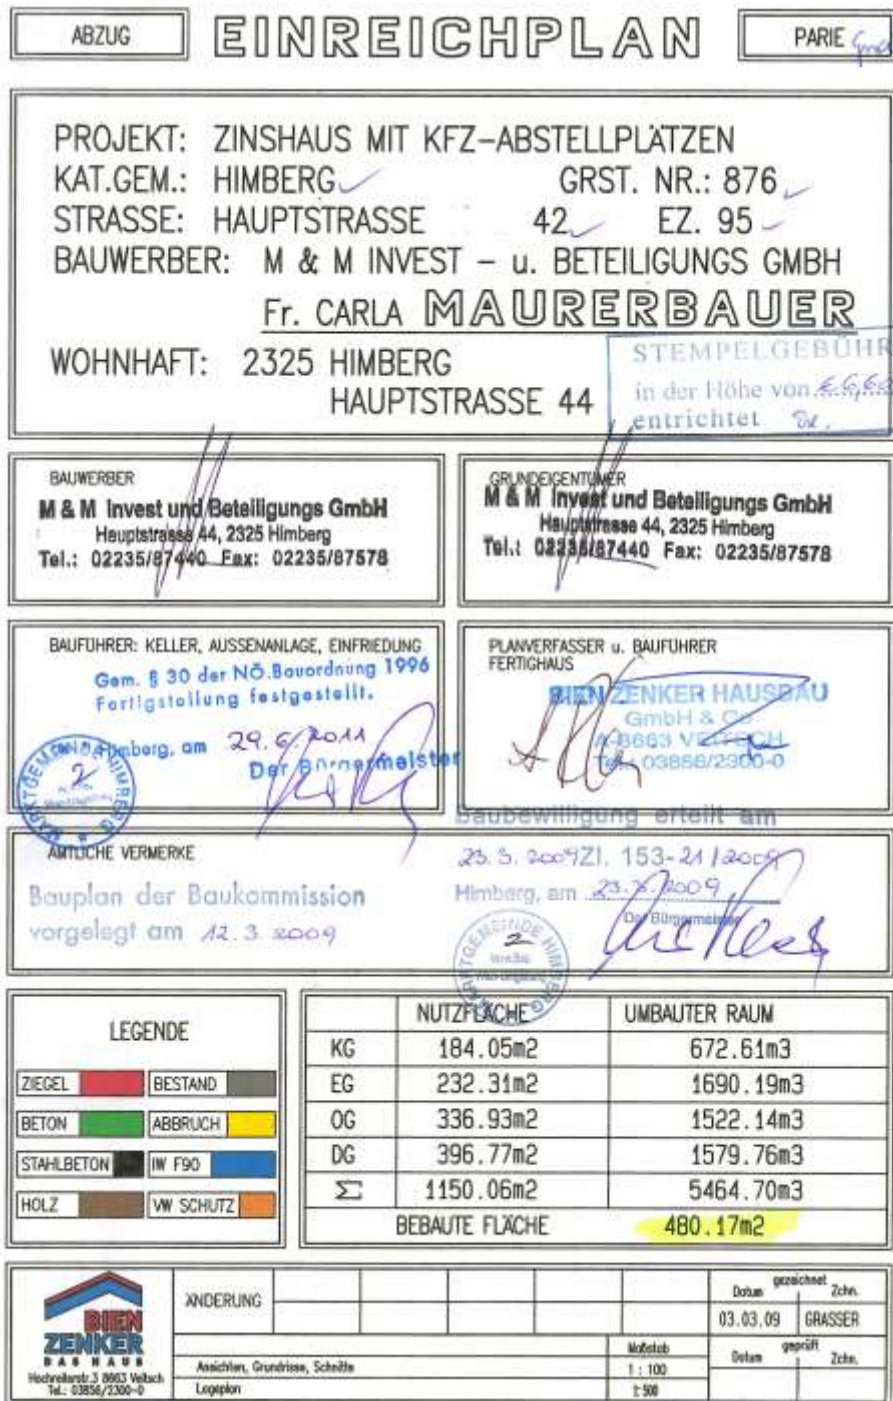 ABZUG
EINREICHPLAN
PARIE
PROJEKT: ZINSHAUS MIT KFZ-ABSTELLPLÄTZEN
KAT.GEM.: HIMBERG GRST. NR.: 876
STRASSE: HAUPTSTRASSE 42 EZ. 95
BAUWERBER: M & M INVEST - u. BETEILIGUNGS GMBH
Fr. CARLA MAURERBAUER
WOHNHAFT: 2325 HIMBERG
HAUPTSTRASSE 44
STEMPELGEBÜHR
in der Höhe von
entrichtet
BAUWERBER
M & M Invest und Beteiligungs GmbH
Hauptstrasse 44, 2325 Himberg
Tel.: 02235/87440 Fax: 02235/87578
GRUNDEIGENTÜMER
M & M Invest und Beteiligungs GmbH
Hauptstrasse 44, 2325 Himberg
Tel.: 02235/87440 Fax: 02235/87578
BAUFÜHRER: KELLER, AUSSENANLAGE, EINFRIEDUNG
Gem. § 30 der NÖ.Bauordnung 1996
Fertigstellung festgestellt.
Himberg, am 29.6.2011
Der Bürgermeister
MARKTGEMEINDE HIMBERG
2
PLANVERFASSER u. BAUFÜHRER
FERTIGHAUS
BIEN ZENKER HAUSBAU
GmbH & Co
A-8663 VEITSCH
Tel.: 03856/2300-0
Baubewilligung erteilt am
23.3.2009 Zl. 153-21/2009
Himberg, am 23.3.2009
Der Bürgermeister
MARKTGEMEINDE HIMBERG
2
AMTLICHE VERMERKE
Bauplan der Baukommission
vorgelegt am 12.3.2009
LEGENDE
ZIEGEL BESTAND
BETON ABBRUCH
STAHLBETON IW F90
HOLZ VW SCHUTZ
NUTZFLÄCHE UMBAUTER RAUM
KG 184.05m2 672.61m3
EG 232.31m2 1690.19m3
OG 336.93m2 1522.14m3
DG 396.77m2 1579.76m3
Σ 1150.06m2 5464.70m3
BEBAUTE FLÄCHE 480.17m2
BIEN
ZENKER
DAS HAUS
Hochreiterstr.3 8663 Veitsch
Tel.: 03856/2300-0
ÄNDERUNG
Ansichten, Grundrisse, Schnitte
Lageplan
Maßstab
1 : 100
1: 500
gezeichnet
Datum Zchn.
03.03.09 GRASSER
geprüft
Datum Zchn.